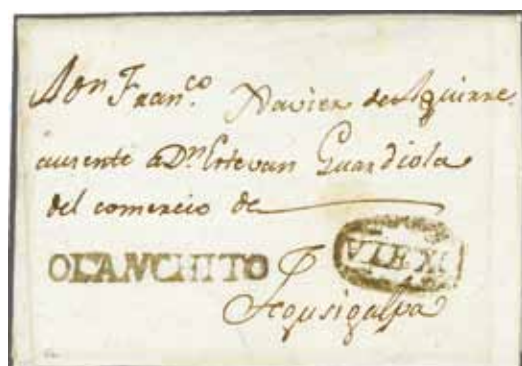 Don Fran.co Xavier de Aguirre
ausente a Dn Estevan Guardiola
del comercio de
OLANCHITO
Tegusigalpa